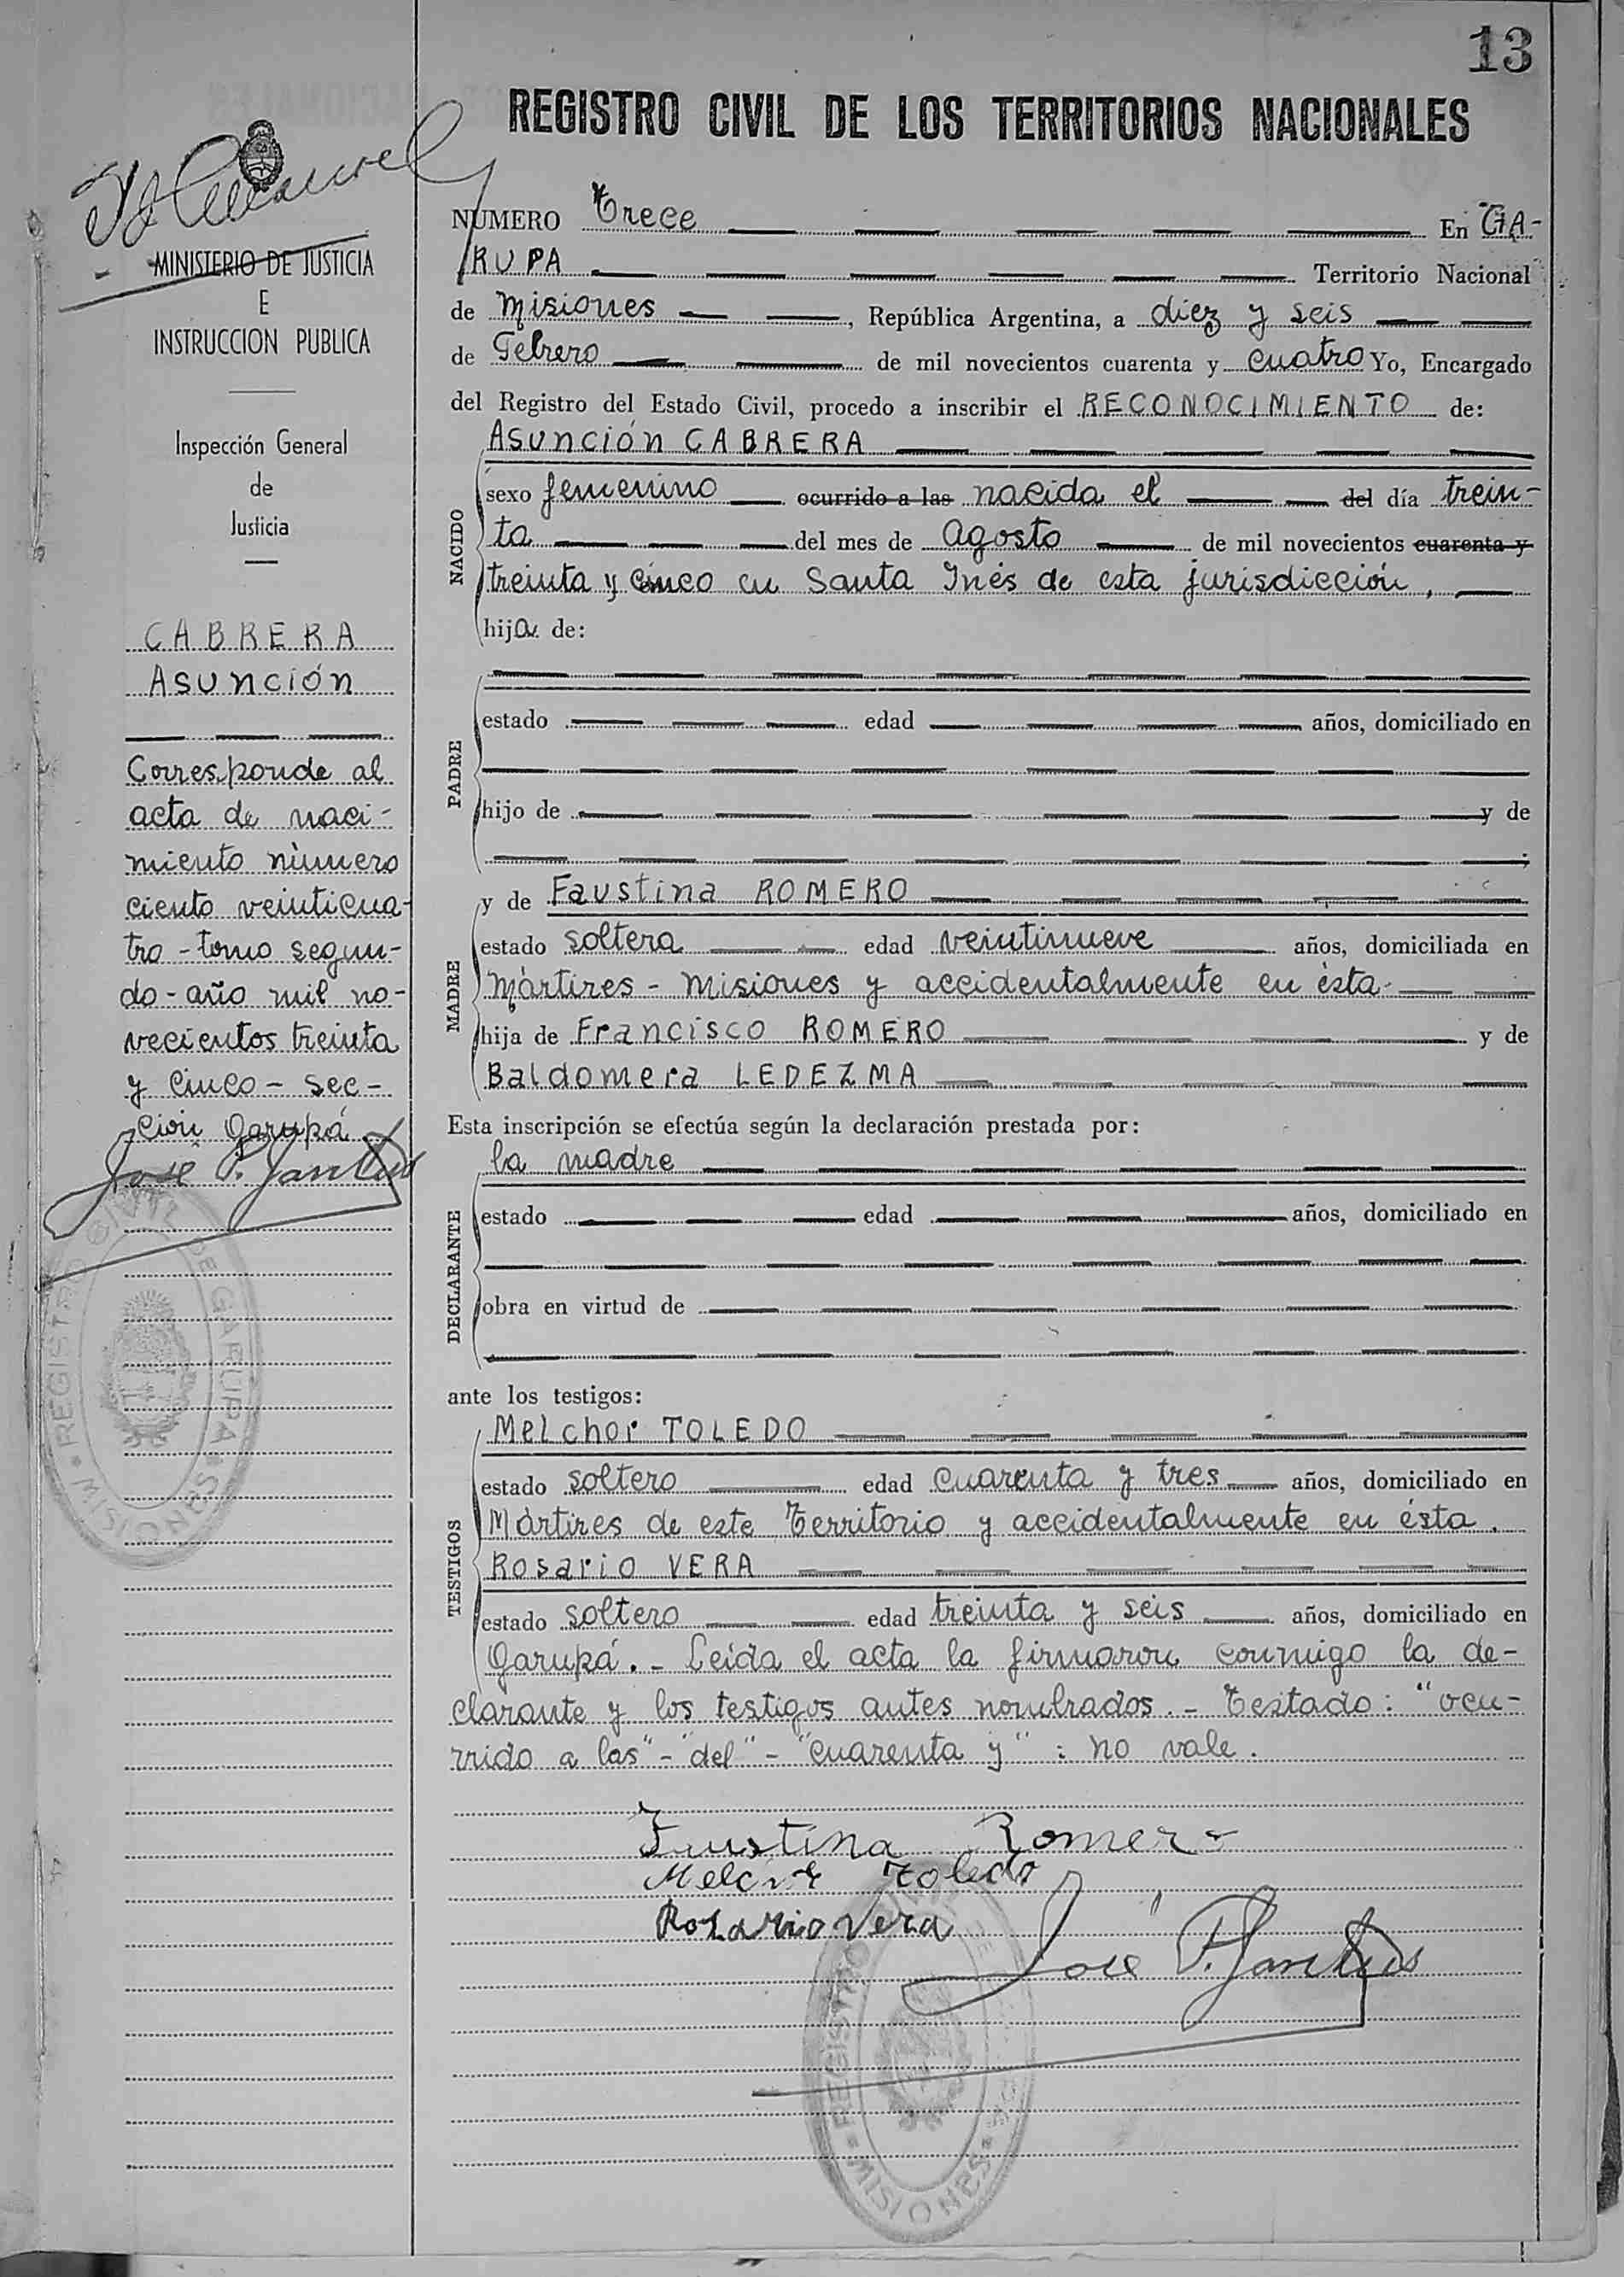 13
REGISTRO CIVIL DE LOS TERRITORIOS NACIONALES
MINISTERIO DE JUSTICIA
E
INSTRUCCION PUBLICA
Inspección General
de
Justicia
CABRERA
Asunción
Corresponde al
acta de naci-
miento nùmero
ciento veinticua-
tro - tomo segun-
do - año mil no-
vecientos treinta
y cinco - sec-
ción Garupá
José P.
REGISTRO CIVIL DE GARUPA
MISIONES
NUMERO Trece En GA-
RUPA Territorio Nacional
de Misiones, República Argentina, a diez y seis
de Febrero de mil novecientos cuarenta y cuatro Yo, Encargado
del Registro del Estado Civil, procedo a inscribir el RECONOCIMIENTO de:
Asunción CABRERA
NACIDO
sexo femenino ocurrido a las nacida el del día trein-
ta del mes de Agosto de mil novecientos cuarenta y
treinta y cinco en Santa Inés de esta jurisdicción,
hija de:
PADRE
estado edad años, domiciliado en
hijo de y de
;
y de Faustina ROMERO
MADRE
estado soltera edad veintinueve años, domiciliada en
Mártires - Misiones y accidentalmente en ésta-
hija de Francisco ROMERO y de
Baldomera LEDEZMA
Esta inscripción se efectúa según la declaración prestada por:
la madre
DECLARANTE
estado edad años, domiciliado en
obra en virtud de
ante los testigos:
Melchor TOLEDO
TESTIGOS
estado soltero edad cuarenta y tres años, domiciliado en
Mártires de este Territorio y accidentalmente en ésta.
Rosario VERA
estado soltero edad treinta y seis años, domiciliado en
Garupá. - Leída el acta la firmaron conmigo la de-
clarante y los testigos antes nombrados. - Testado: "ocu-
rrido a las" - "del" - "cuarenta y" : no vale.
Faustina Romero
Melchor Toledo
Rosario Vera
José P.
REGISTRO CIVIL DE
MISIONES